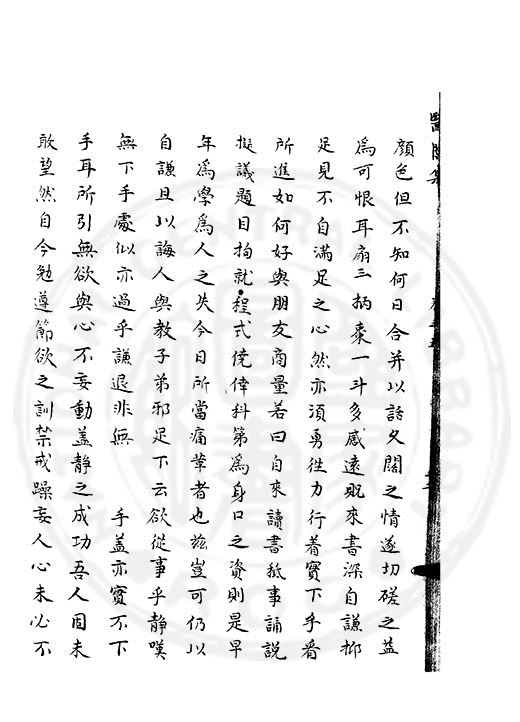 顏色但不知何日合并以話久闊之情遂切磋之益
爲可恨耳扇三柄棗一斗多感遠貺來書深自謙抑
足見不自滿足之心然亦須勇徃力行着實下手看
所進如何好與朋友商量若曰自來讀書秪事誦說
擬議題目拘就程式僥倖科第爲身口之資則是早
年爲學爲人之失今日所當痛革者也兹豈可仍以
自謙且以誨人與教子弟邪足下云欲從事乎靜嘆
無下手處似亦過乎謙退非無 手蓋亦實不下
手耳所引無欲與心不妄動蓋靜之成功吾人固未
敢望然自今勉遵節欲之訓禁戒躁妄人心未必不